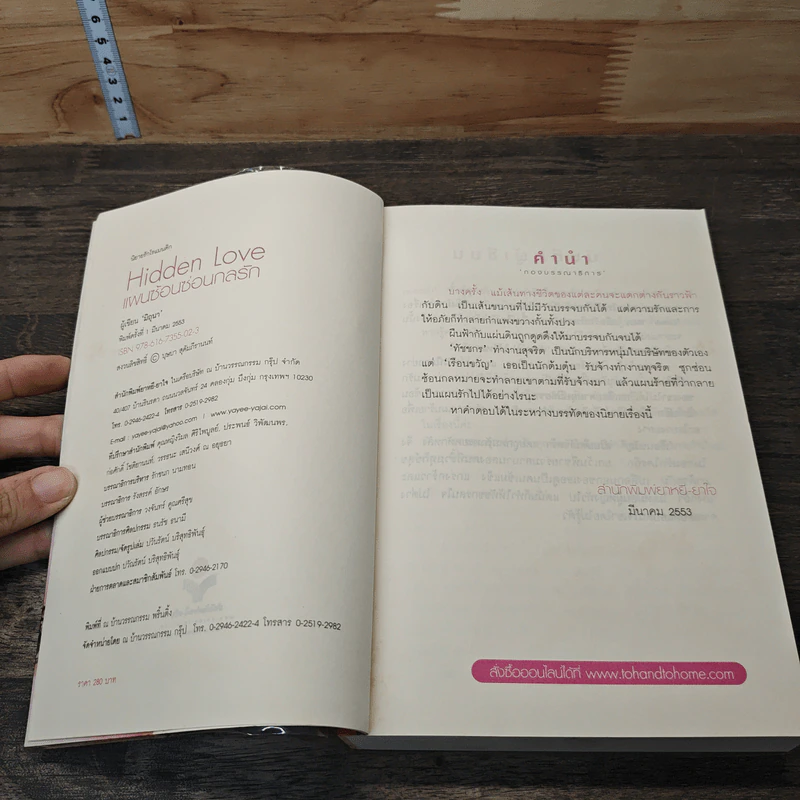 6
5
4
3
2
1
นิยายรักโรแมนติก
Hidden Love
แผนซ้อนซ่อนกลรัก
ผู้เขียน 'มิถุนา'
พิมพ์ครั้งที่ 1 มีนาคม 2553
ISBN 978-616-7355-02-3
สงวนลิขสิทธิ์ © บุษยา
สำนักพิมพ์ยาหยี-ยาใจ ในเครือบริษัท ณ บ้านวรรณกรรม กรุ๊ป จำกัด
40/407 บ้านรินรดา ถนนนวลจันทร์ 24 คลองกุ่ม บึงกุ่ม กรุงเทพฯ 10230
โทร. 0-2946-2422-4 โทรสาร 0-2519-2982
E-mail : yayee-yajai@yahoo.com | www.yayee-yajai.com
ที่ปรึกษาสำนักพิมพ์ คุณหญิงวิมล ศิริไพบูลย์. ประพนธ์ วิพัฒนพร.
ก่อศักดิ์ ไชยรัศมีศักดิ์
บรรณาธิการบริหาร รักชนก นามทอน
บรรณาธิการ รังสรรค์ อักษร
ผู้ช่วยบรรณาธิการ วงจันทร์ คูณตรีสุข
บรรณาธิการศิลปกรรม ธนรัช ธนามี
ศิลปกรรม/จัดรูปเล่ม ปวันรัตน์ บริสุทธิพันธุ์
ออกแบบปก ปวันรัตน์ บริสุทธิพันธุ์
ฝ่ายการตลาดและสมาชิกสัมพันธ์ โทร. 0-2946-2170
พิมพ์ที่ ณ บ้านวรรณกรรม พริ้นติ้ง
จัดจำหน่ายโดย ณ บ้านวรรณกรรม กรุ๊ป โทร. 0-2946-2422-4 โทรสาร 0-2519-2982
ราคา 280 บาท
คำนำ
'กองบรรณาธิการ'
บางครั้ง แม้เส้นทางชีวิตของแต่ละคนจะแตกต่างกันราวฟ้า
กับดิน เป็นเส้นขนานที่ไม่มีวันบรรจบกันได้ แต่ความรักและการ
ให้อภัยก็ทำลายกำแพงขวางกั้นทั้งปวง
ผืนฟ้ากับแผ่นดินถูกดูดดึงให้มาบรรจบกันจนได้
'ทัชชกร' ทำงานสุจริต เป็นนักบริหารหนุ่มในบริษัทของตัวเอง
แต่ 'เรือนขวัญ' เธอเป็นนักต้มตุ๋น รับจ้างทำงานทุจริต ซุกซ่อน
ซ้อนกลหมายจะทำลายเขาตามที่รับจ้างมา แล้วแผนร้ายที่ว่ากลาย
เป็นแผนรักไปได้อย่างไรนะ
หาคำตอบได้ในระหว่างบรรทัดของนิยายเรื่องนี้
สำนักพิมพ์ยาหยี-ยาใจ
มีนาคม 2553
สั่งซื้อออนไลน์ได้ที่ www.tohandtohome.com